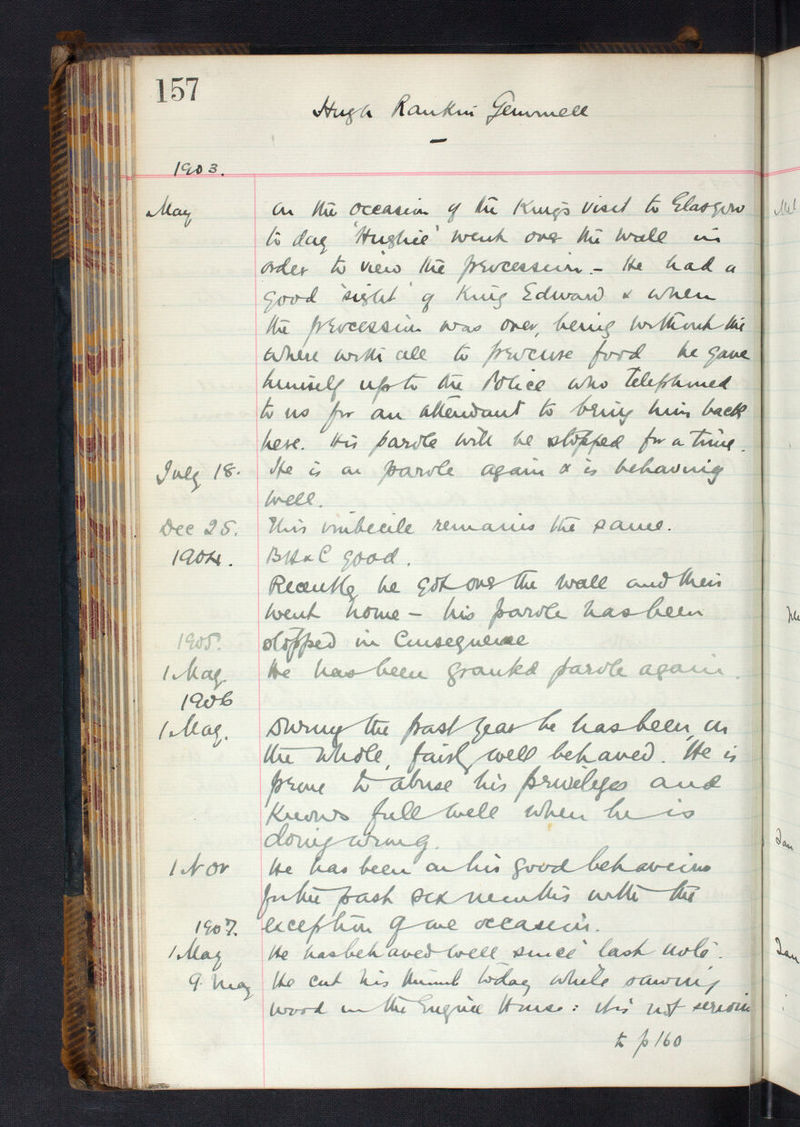 157
Hugh Rankin Gemmell
1903.
May On the occasion of the King's visit to Glasgow
to day 'Hughie' went over the wall in
order to view the procession. - He had a
good 'sight' of King Edward & when
the procession was over, being without the
where with all to procure food he gave
himself up to the Police who telephoned
to us for an attendant to bring him back
here. His parole will be stopped for a time.
July 18. He is on parole again & is behaving
well.
Dec 28. This imbecile remains the same.
1904. B H & C good.
Recently he got over the wall and then
went home - his parole has been
1905. stopped in consequence
1 May. He has been granted parole again.
1906
1 May. During the past year he has been, on
the whole, fairly well behaved. He is
prone to abuse his privileges and
knows full well when he is
doing wrong.
1 Nov He has been on his good behaviour
for the past six months with the
1907. exception of one occasion.
1 May He has behaved well since last note.
9 May He cut his thumb today while sawing
wood in the Engine House: it is not serious
to p 160